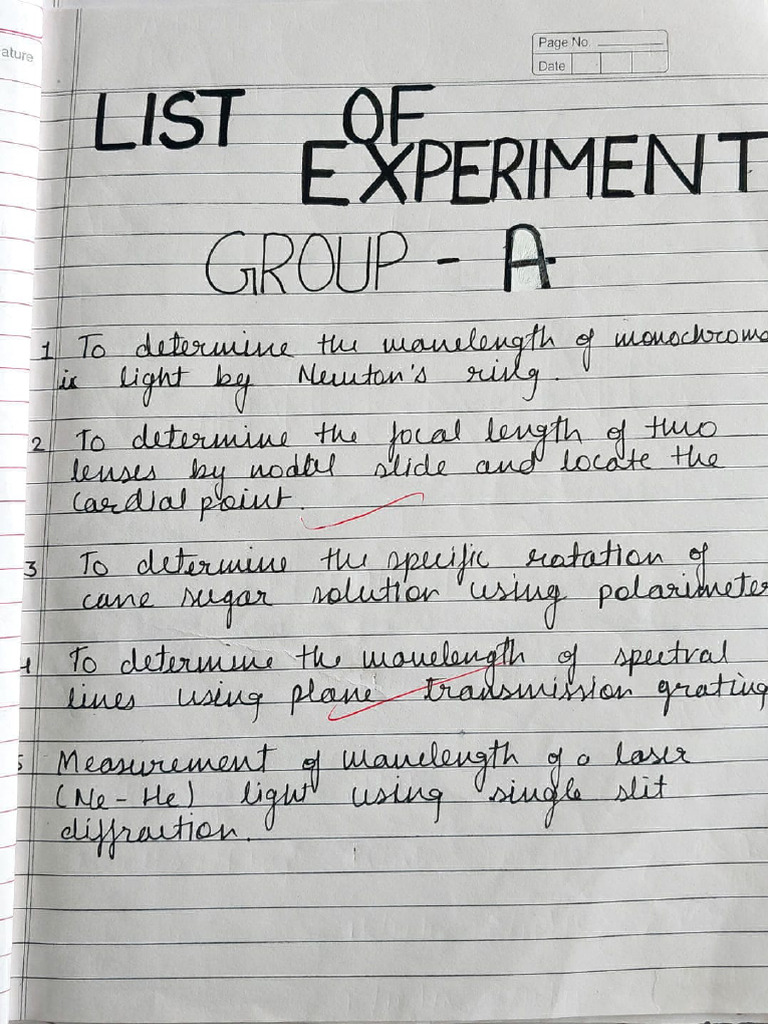 ature
Page No.
Date
LIST OF
EXPERIMENT
GROUP - A
1 To determine the wavelength of monochroma
ic light by Newton's ring.
2 To determine the focal length of two
lenses by nodal slide and locate the
Cardial point.
3 To determine the specific rotation of
cane sugar solution using polarimeter
4 To determine the wavelength of spectral
lines using plane transmission grating
5 Measurement of wavelength of a laser
(Ne-He) light using single slit
diffraction.